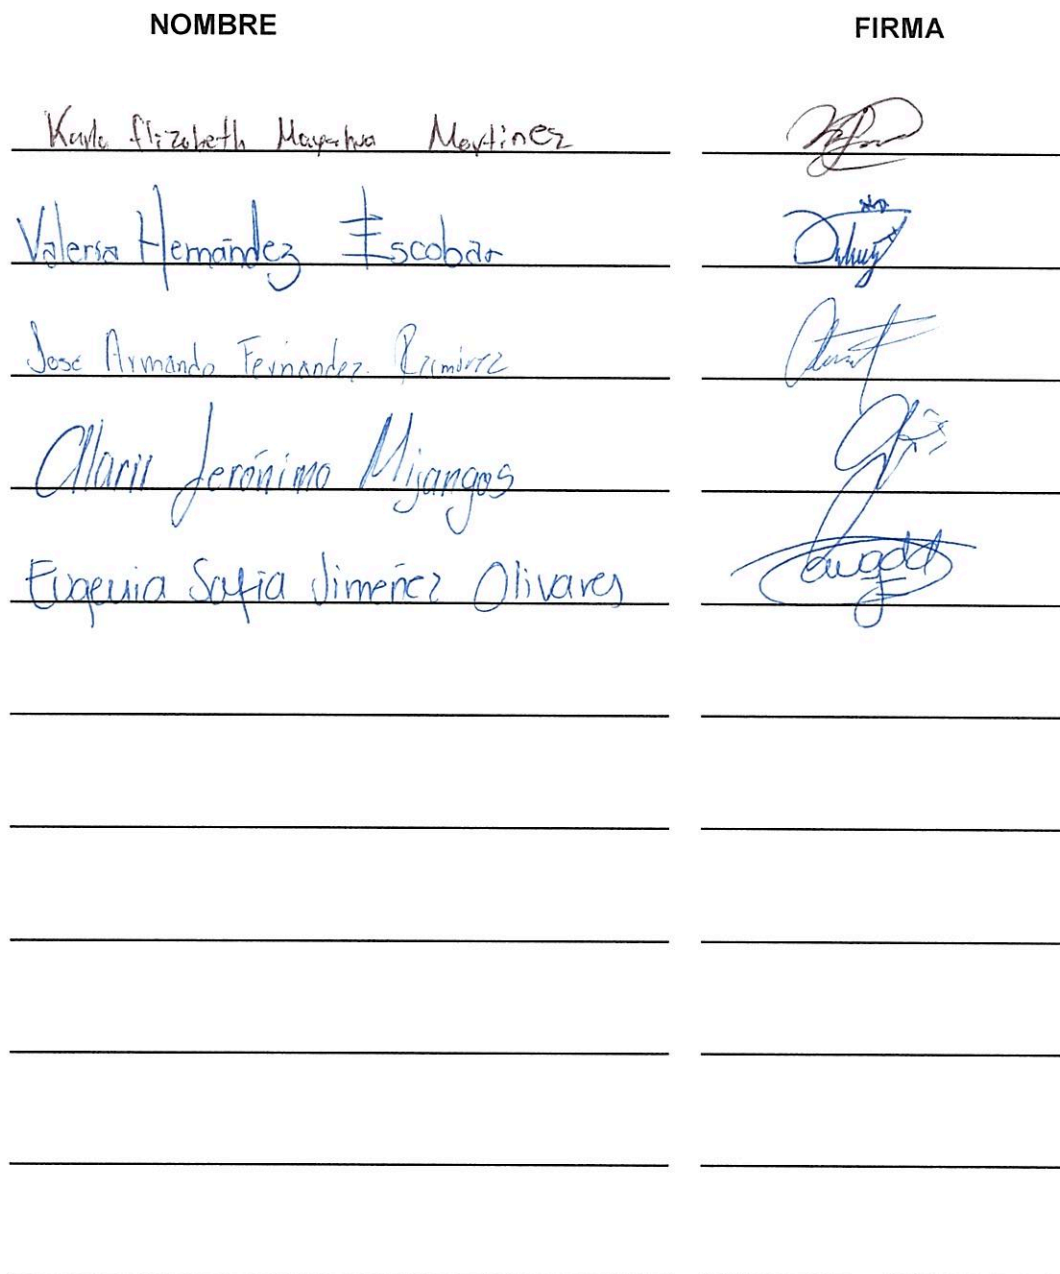 NOMBRE FIRMA
Karla Elizabeth Martinez
Valeria Hernández Escobar
Jose Armando Fernandez Ramirez
Jerónimo Mijangos
Eugenia Sofia Jimenez Olivares